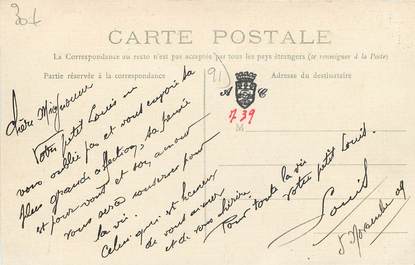 30f
CARTE POSTALE
La Correspondance au recto n'est pas acceptée par tous les pays étrangers (se renseigner à la Poste)
Partie réservée à la correspondance
Adresse du destinataire
91
A C
739
M
Chère Mignonne
Votre petit Louis ne
vous oublie pas et vous envoie sa
plus grande affection, sa pensée
est pour vous et son amour
vous sera toujours pour
la vie.
Celui qui est heureux
de vous aimer
et de vous chérir.
Pour toute la vie
votre petit Louis.
Louis
5 Novembre 09